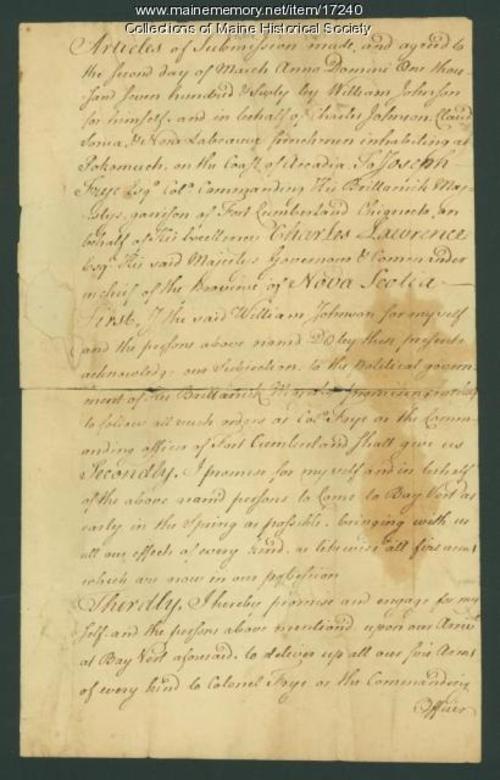 www.mainememory.net/item/17240
Collections of Maine Historical Society
Articles of Submission made, and agreed to
the Second day of March Anno Domini One thou-
sand seven hundred & Sixty by William Johnson
for himself, and in behalf of Charles Johnson, Claud
& Nora frenchmen inhabiting at
Pokomuch, on the Coast of Accadia, To Joseph
Frye Esqr. Colo. Commanding His Brittanick Maj-
estys garrison of Fort Cumberland Chignecto, on
behalf of His Excellency Charles Lawrence
Esqr. His said Majesties Governour & Commander
in cheif of the Province of Nova Scotia
First, I the said William Johnson for my self
and the persons above namd Do by these presents
acknowledg: our Subjection to the Political govern-
ment of His Brittanick Majesty promising
to follow all such orders as Colo. Frye or the Comm-
anding officer of Fort Cumberland Shall give us
Secondly, I promise for my self and in behalf
of the above namd persons to Come to Bay Vert as
early in the Spring as possible, bringing with us
all our effects of every kind, as likewise all fire arms
which are now in our possession
Therdly, I hereby promise and engage for my
self and the persons above mentiond upon our
at Bay Vert aforesaid, to deliver up all our fire Arms
of every kind to Colonel Frye or the Commanding
Officer